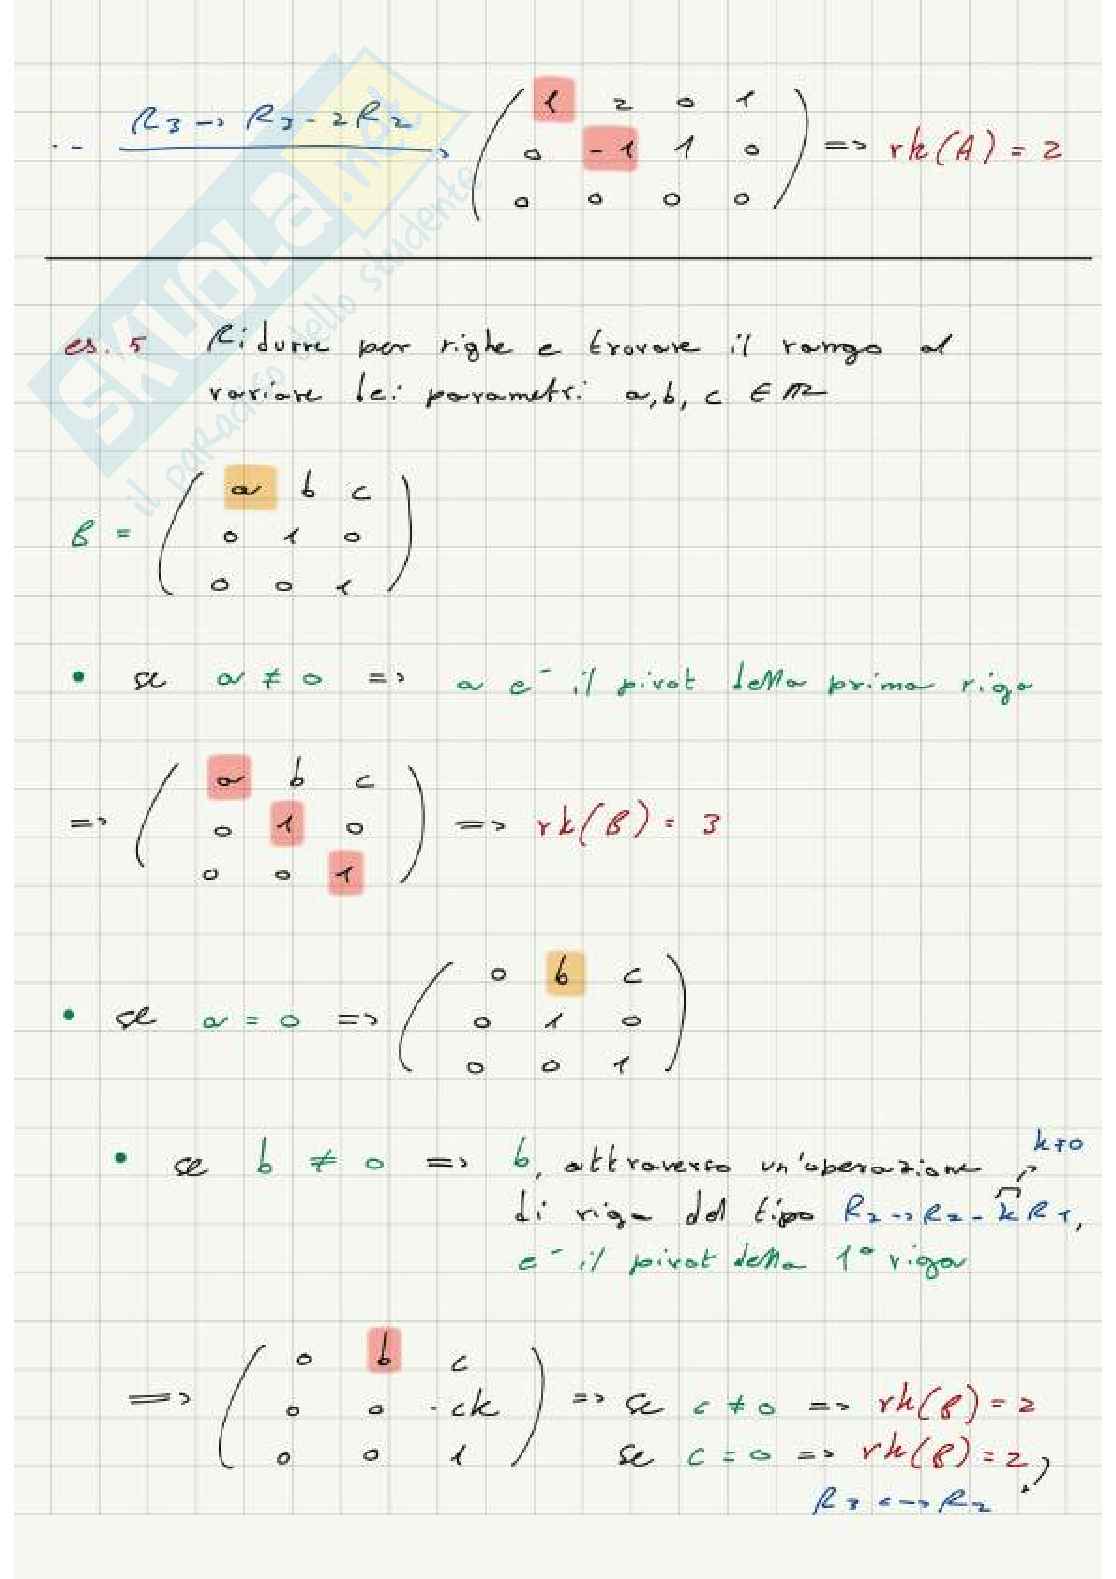 ·- R3 → R3 - 2R2 ( 1 2 0 1
0 -1 1 0
0 0 0 0 ) => rk(A) = 2
es. 5 Ridurre per righe e trovare il rango al
variare dei parametri a, b, c ∈ R
B = ( a b c
0 1 0
0 0 1 )
• se a ≠ 0 => a e- il pivot della prima riga
=> ( a b c
0 1 0
0 0 1 ) => rk(B) = 3
• se a = 0 => ( 0 b c
0 1 0
0 0 1 )
• se b ≠ 0 => b, attraverso un'operazione k≠0
di riga del tipo R2 → R2 - k R1,
e- il pivot della 1ª riga
=> ( 0 b c
0 0 -ck
0 0 1 ) => se c ≠ 0 => rk(B) = 2
se c = 0 => rk(B) = 2,
R3 <-> R2
SKUOLA.net
il paradiso dello studente